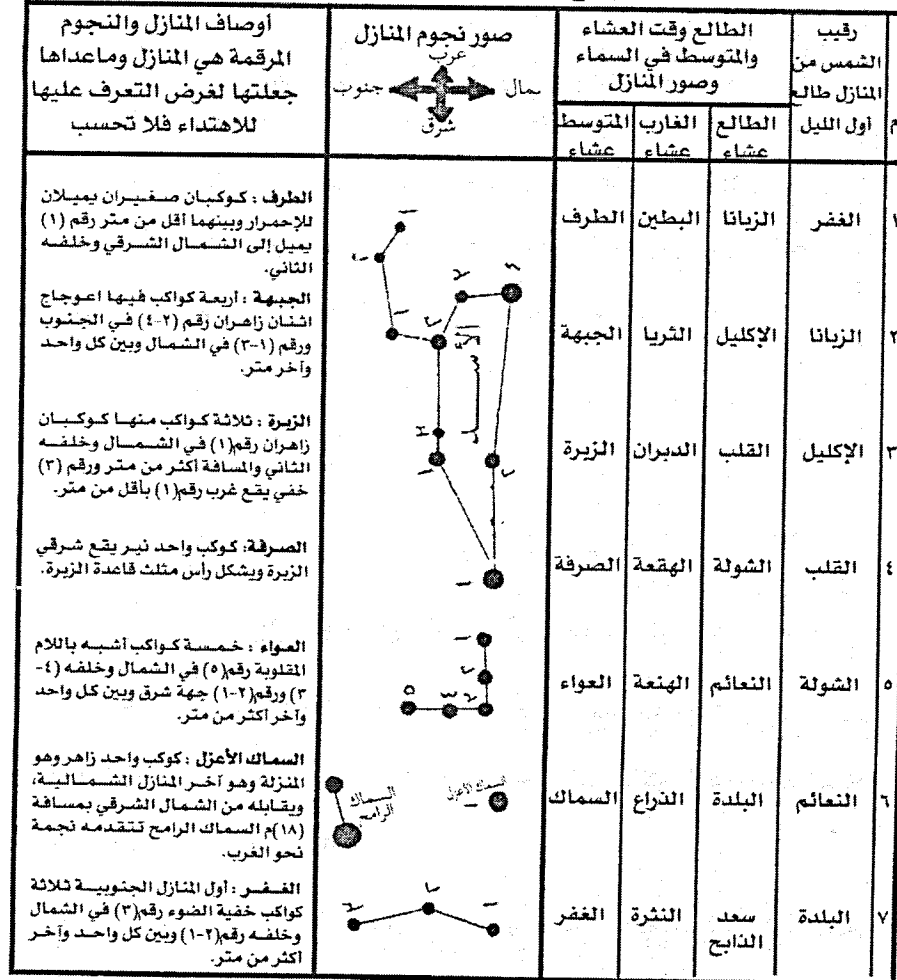 م
رقيب
الشمس من
المنازل طالع
أول الليل
الطالع وقت العشاء
والمتوسط في السماء
وصور المنازل
الطالع
عشاء
الغارب
عشاء
المتوسط
عشاء
صور نجوم المنازل
عرب
جنوب
مال
شرق
أوصاف المنازل والنجوم
المرقمة هي المنازل وماعداها
جعلتها لغرض التعرف عليها
للاهتداء فلا تحسب
١ الغفر الزبانا البطين الطرف
١
٢
الطرف : كوكبان صغيران يميلان
للإحمرار وبينهما أقل من متر رقم (١)
يميل إلى الشمال الشرقي وخلفه
الثاني.
٢ الزبانا الإكليل الثريا الجبهة
١
٢
٣
٤
الأسد
الجبهة : أربعة كواكب فيها اعوجاج
اثنان زاهران رقم (٢-٤) في الجنوب
ورقم (١-٣) في الشمال وبين كل واحد
وآخر متر.
٣ الإكليل القلب الدبران الزبرة
٣
١
٢
الزبرة : ثلاثة كواكب منها كوكبان
زاهران رقم(١) في الشمال وخلفه
الثاني والمسافة أكثر من متر ورقم (٣)
خفي يقع غرب رقم(١) بأقل من متر.
٤ القلب الشولة الهقعة الصرفة
١
الصرفة: كوكب واحد نير يقع شرقي
الزبرة ويشكل رأس مثلث قاعدة الزبرة.
٥ الشولة النعائم الهنعة العواء
١
٢
٣
٤
٥
العواء : خمسة كواكب أشبه باللام
المقلوبة رقم(٥) في الشمال وخلفه (٤-
٣) ورقم(٢-١) جهة شرق وبين كل واحد
وآخر أكثر من متر.
٦ النعائم البلدة الذراع السماك
السماك الأعزل
١
السماك
الرامح
السماك الأعزل : كوكب واحد زاهر وهو
المنزلة وهو آخر المنازل الشمالية،
ويقابله من الشمال الشرقي بمسافة
(١٨)م السماك الرامح تتقدمه نجمة
نحو الغرب.
٧ البلدة سعد
الذابح
النثرة الغفر
١
٢
٣
الغفر : أول المنازل الجنوبية ثلاثة
كواكب خفية الضوء رقم(٣) في الشمال
وخلفه رقم(٢-١) وبين كل واحد وآخر
أكثر من متر.